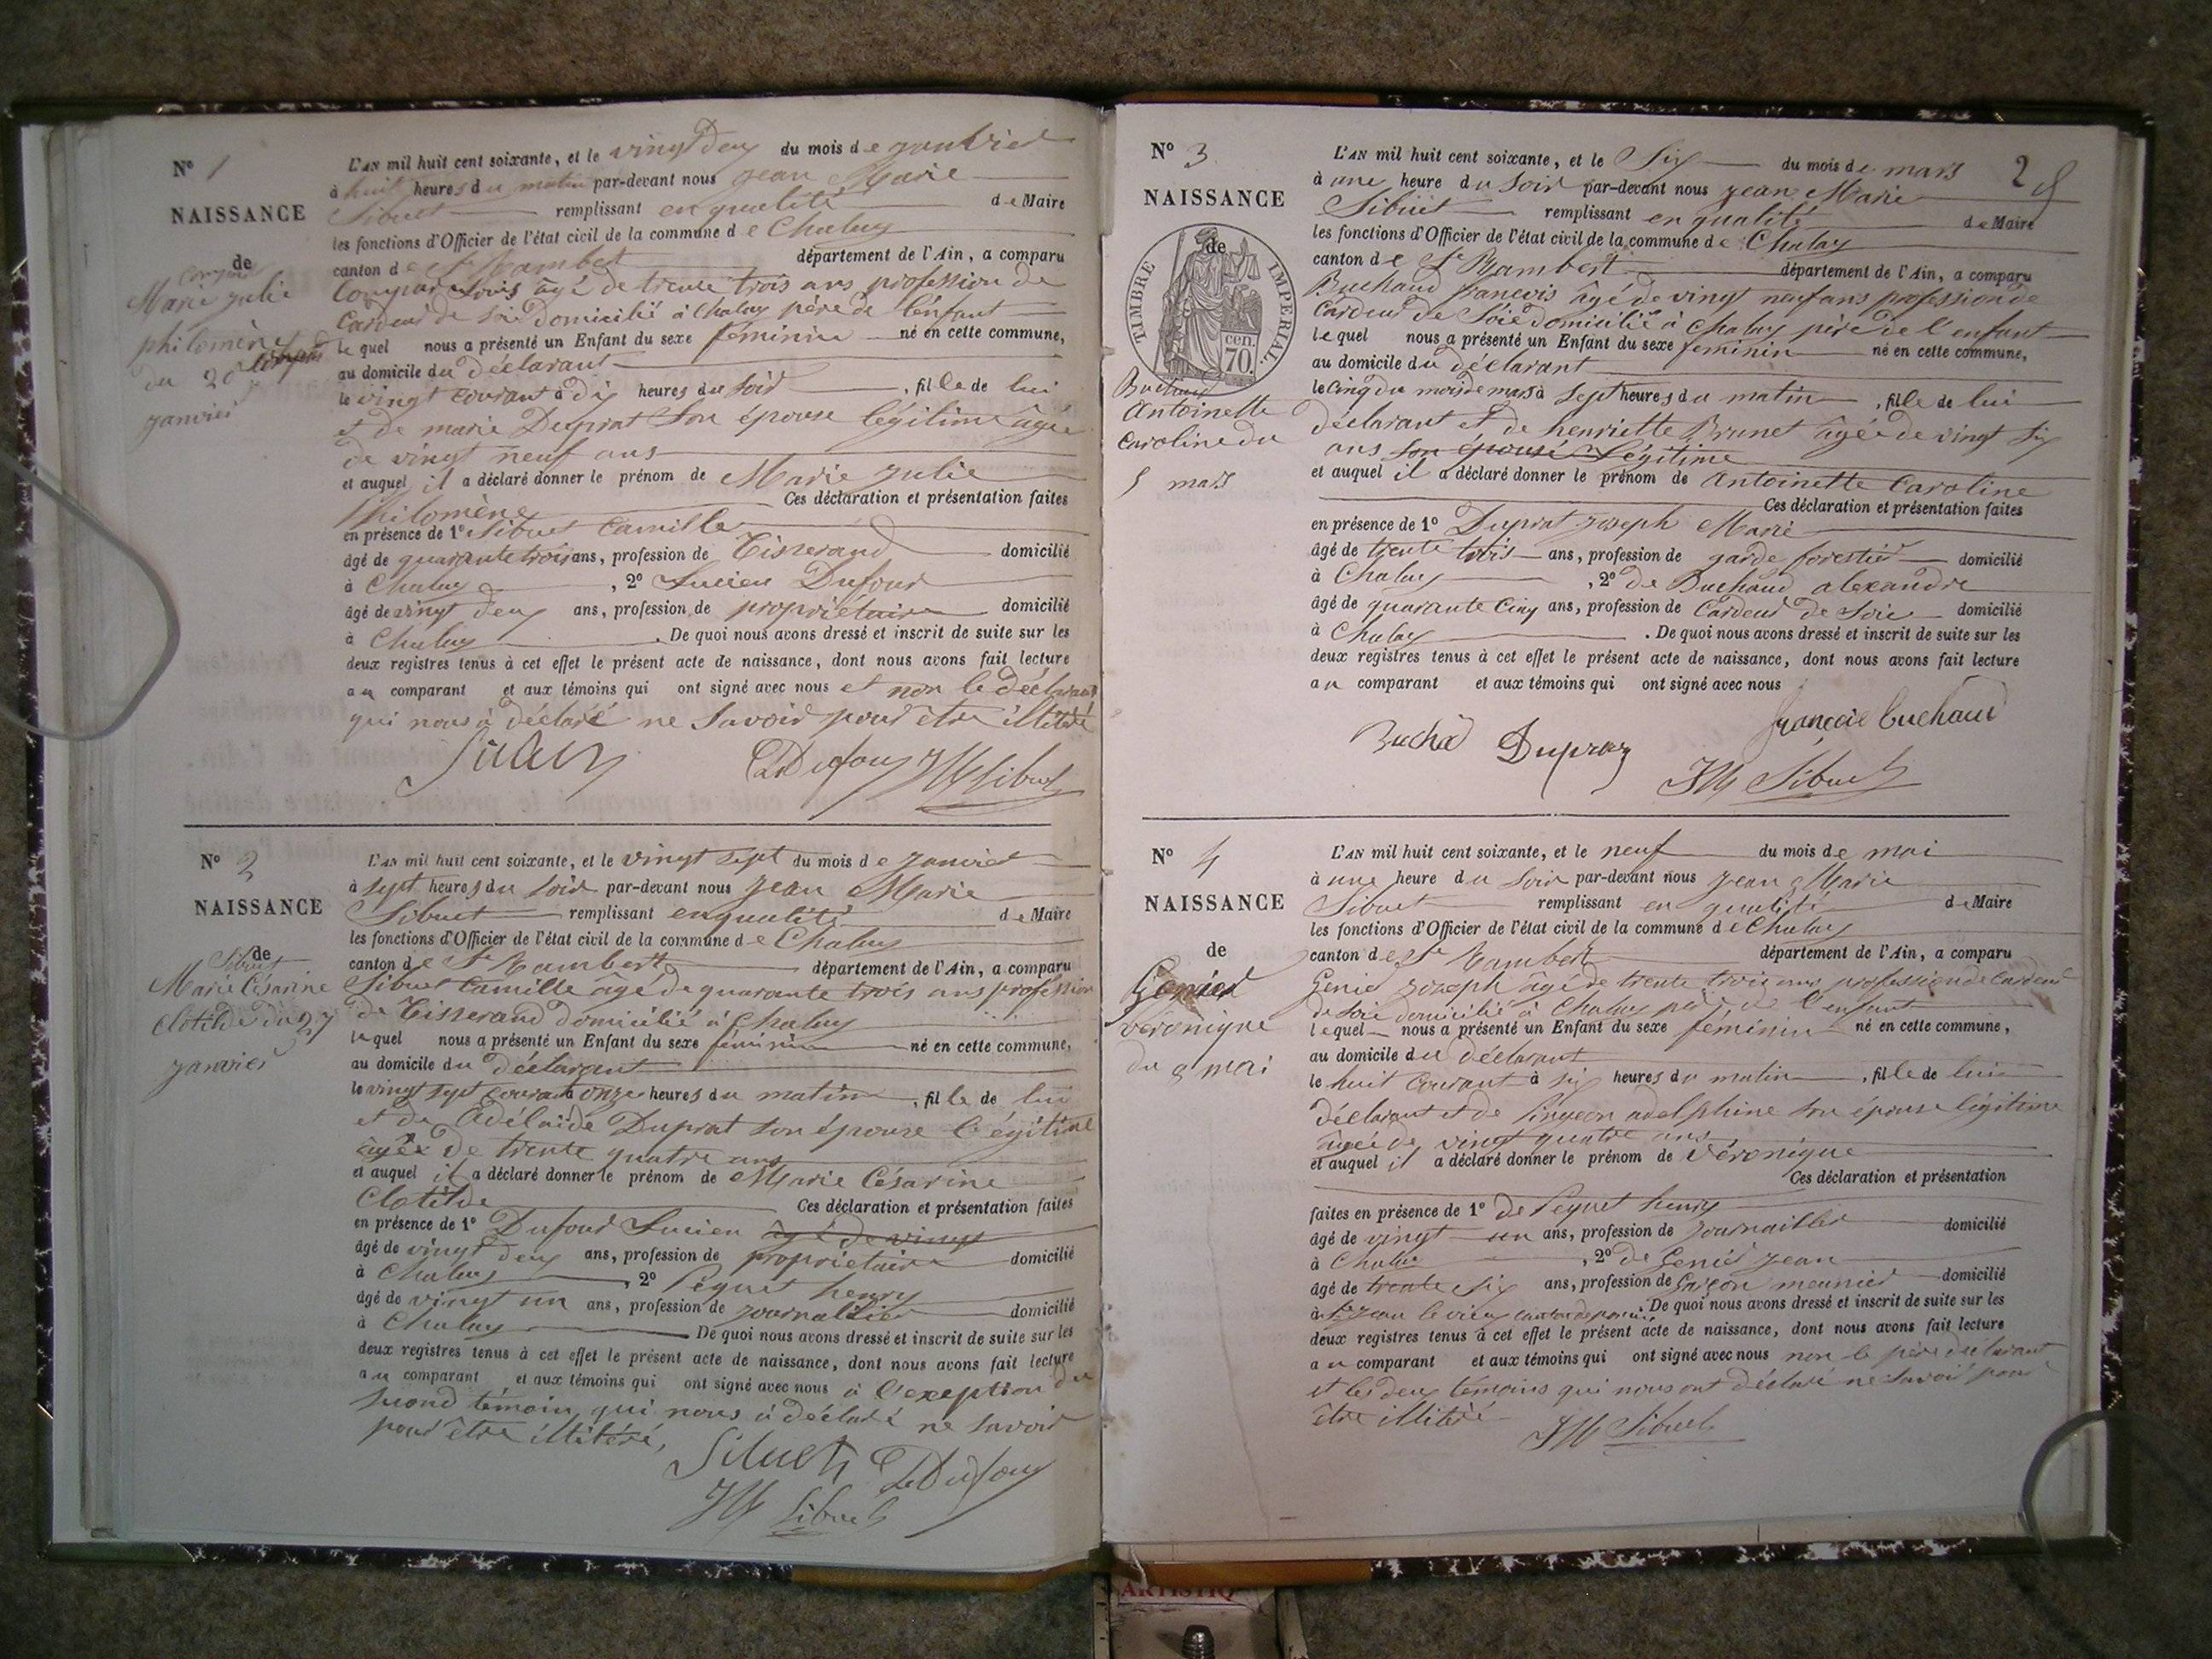 N° 1
NAISSANCE
de
Marie julie
philomène
du 20
janvier
L'AN mil huit cent soixante, et le vingt deux du mois de janvier
à huit heures du matin par-devant nous jean Marie
Sibuet remplissant en qualité de Maire
les fonctions d'Officier de l'état civil de la commune de Chaley
canton de St Rambert département de l'Ain, a comparu
Louis âgé de trente trois ans profession de
Cardeur de soie domicilié à Chaley père de l'enfant
lequel nous a présenté un Enfant du sexe féminin né en cette commune,
au domicile du déclarant
le vingt courant à dix heures du soir, fille de lui
et de marie Duprat son épouse légitime âgée
de vingt neuf ans
et auquel il a déclaré donner le prénom de Marie julie
Philomène Ces déclaration et présentation faites
en présence de 1° Sibuet Camille
âgé de quarante trois ans, profession de Tisserand domicilié
à Chaley, 2° Lucien Dufour
âgé de vingt deux ans, profession de propriétaire domicilié
à Chaley. De quoi nous avons dressé et inscrit de suite sur les
deux registres tenus à cet effet le présent acte de naissance, dont nous avons fait lecture
au comparant et aux témoins qui ont signé avec nous et non le déclarant
qui nous à déclaré ne savoir pour être illitéré
Sibuet LDufour JM Sibuet
N° 2
NAISSANCE
de
Sibuet
Marie Césarine
Clotilde du 27
janvier
L'AN mil huit cent soixante, et le vingt sept du mois de janvier
à sept heures du soir par-devant nous jean Marie
Sibuet remplissant en qualité de Maire
les fonctions d'Officier de l'état civil de la commune de Chaley
canton de St Rambert département de l'Ain, a comparu
Sibuet Camille âgé de quarante trois ans profession
de Tisserand domicilié à Chaley
lequel nous a présenté un Enfant du sexe féminin né en cette commune,
au domicile du déclarant
le vingt sept courant à onze heures du matin, fille de lui
et de Adélaïde Duprat son épouse légitime
âgée de trente quatre ans
et auquel il a déclaré donner le prénom de Marie Césarine
Clotilde Ces déclaration et présentation faites
en présence de 1° Dufour Lucien âgé de vingt
âgé de vingt deux ans, profession de propriétaire domicilié
à Chaley, 2° Péguet henry
âgé de vingt un ans, profession de journallier domicilié
à Chaley De quoi nous avons dressé et inscrit de suite sur les
deux registres tenus à cet effet le présent acte de naissance, dont nous avons fait lecture
au comparant et aux témoins qui ont signé avec nous à l'exeption du
second témoin qui nous à déclaré ne savoir
pour être illitéré,
Sibuet LDufour
JM Sibuet
N° 3
NAISSANCE
de
TIMBRE IMPÉRIAL.
70. cen.
Buchaud
Antoinette
Caroline du
5 mars
2
L'AN mil huit cent soixante, et le Six du mois de mars
à une heure du soir par-devant nous jean Marie
Sibuet remplissant en qualité de Maire
les fonctions d'Officier de l'état civil de la commune de Chaley
canton de St Rambert département de l'Ain, a comparu
Buchaud françois âgé de vingt neuf ans profession de
Cardeur de Soie domicilié à Chaley père de l'enfant
lequel nous a présenté un Enfant du sexe féminin né en cette commune,
au domicile du déclarant
le Cinq du mois de mars à sept heures du matin, fille de lui
déclarant et de henriette Brunet âgée de vingt six
ans son épouse légitime
et auquel il a déclaré donner le prénom de Antoinette Caroline
Ces déclaration et présentation faites
en présence de 1° Duprat joseph Marie
âgé de trente trois ans, profession de garde forestier domicilié
à Chaley, 2° de Buchaud alexandre
âgé de quarante Cinq ans, profession de Cardeur de Soie domicilié
à Chaley. De quoi nous avons dressé et inscrit de suite sur les
deux registres tenus à cet effet le présent acte de naissance, dont nous avons fait lecture
au comparant et aux témoins qui ont signé avec nous
françois buchaud
Buchd Dupraz
JM Sibuet
N° 4
NAISSANCE
de
Genier
véronique
du 9 mai
L'AN mil huit cent soixante, et le neuf du mois de mai
à une heure du soir par-devant nous jean Marie
Sibuet remplissant en qualité de Maire
les fonctions d'Officier de l'état civil de la commune de Chaley
canton de St Rambert département de l'Ain, a comparu
Genier joseph âgé de trente trois ans profession de Cardeur
de soie domicilié à Chaley père de l'enfant
lequel nous a présenté un Enfant du sexe féminin né en cette commune,
au domicile du déclarant
le huit courant à six heures du matin, fille de lui
déclarant et de adelphine son épouse légitime
âgée de vingt quatre ans
et auquel il a déclaré donner le prénom de véronique
Ces déclaration et présentation
faites en présence de 1° de Péguet henry
âgé de vingt un ans, profession de journallier domicilié
à Chaley, 2° de Genier jean
âgé de trente six ans, profession de garçon meunier domicilié
à St jean le vieux canton de De quoi nous avons dressé et inscrit de suite sur les
deux registres tenus à cet effet le présent acte de naissance, dont nous avons fait lecture
au comparant et aux témoins qui ont signé avec nous non le père déclarant
et les deux témoins qui nous ont déclaré ne savoir pour
être illitéré
JM Sibuet
ARTISTIQ